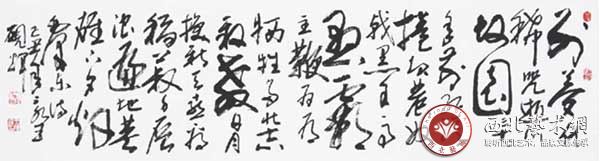 别梦依
稀咒逝川
故园三十
二年前红旗
卷起农奴
戟黑手高
悬霸
主鞭为有
牺牲多壮志
敢教日月
换新天喜看
稻菽千重
浪遍地英
雄下夕烟
毛泽东诗
西北艺术网